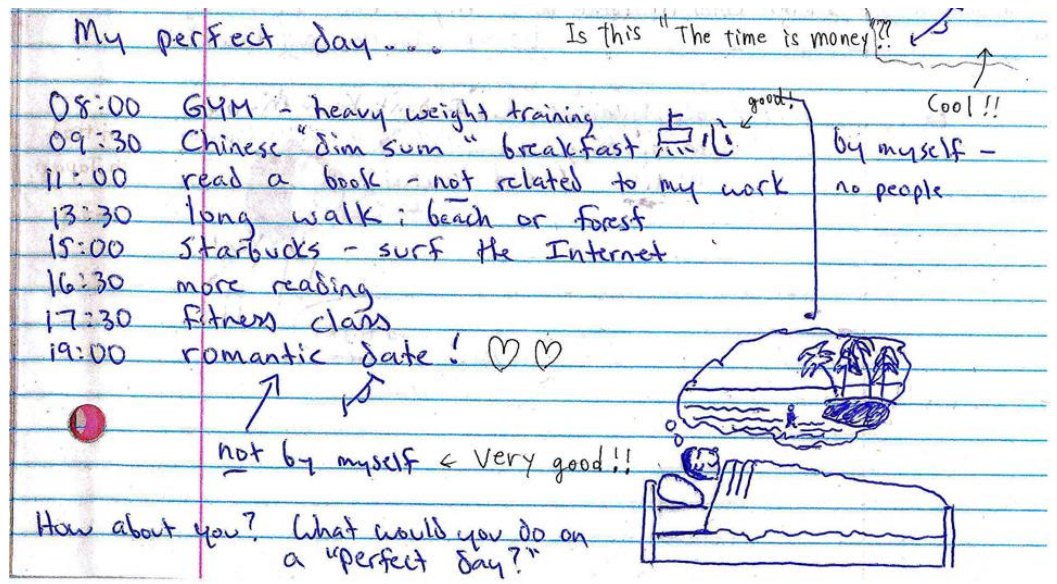 My perfect day...
Is this "The time is money"??
Cool!!
08:00 GYM - heavy weight training
good!
09:30 Chinese "dim sum" breakfast 点心
by myself -
no people
11:00 read a book - not related to my work
13:30 long walk : beach or forest
15:00 Starbucks - surf the Internet
16:30 more reading
17:30 fitness class
19:00 romantic date! ♡♡
not by myself ← Very good!!
How about you? What would you do on
a "perfect day?"